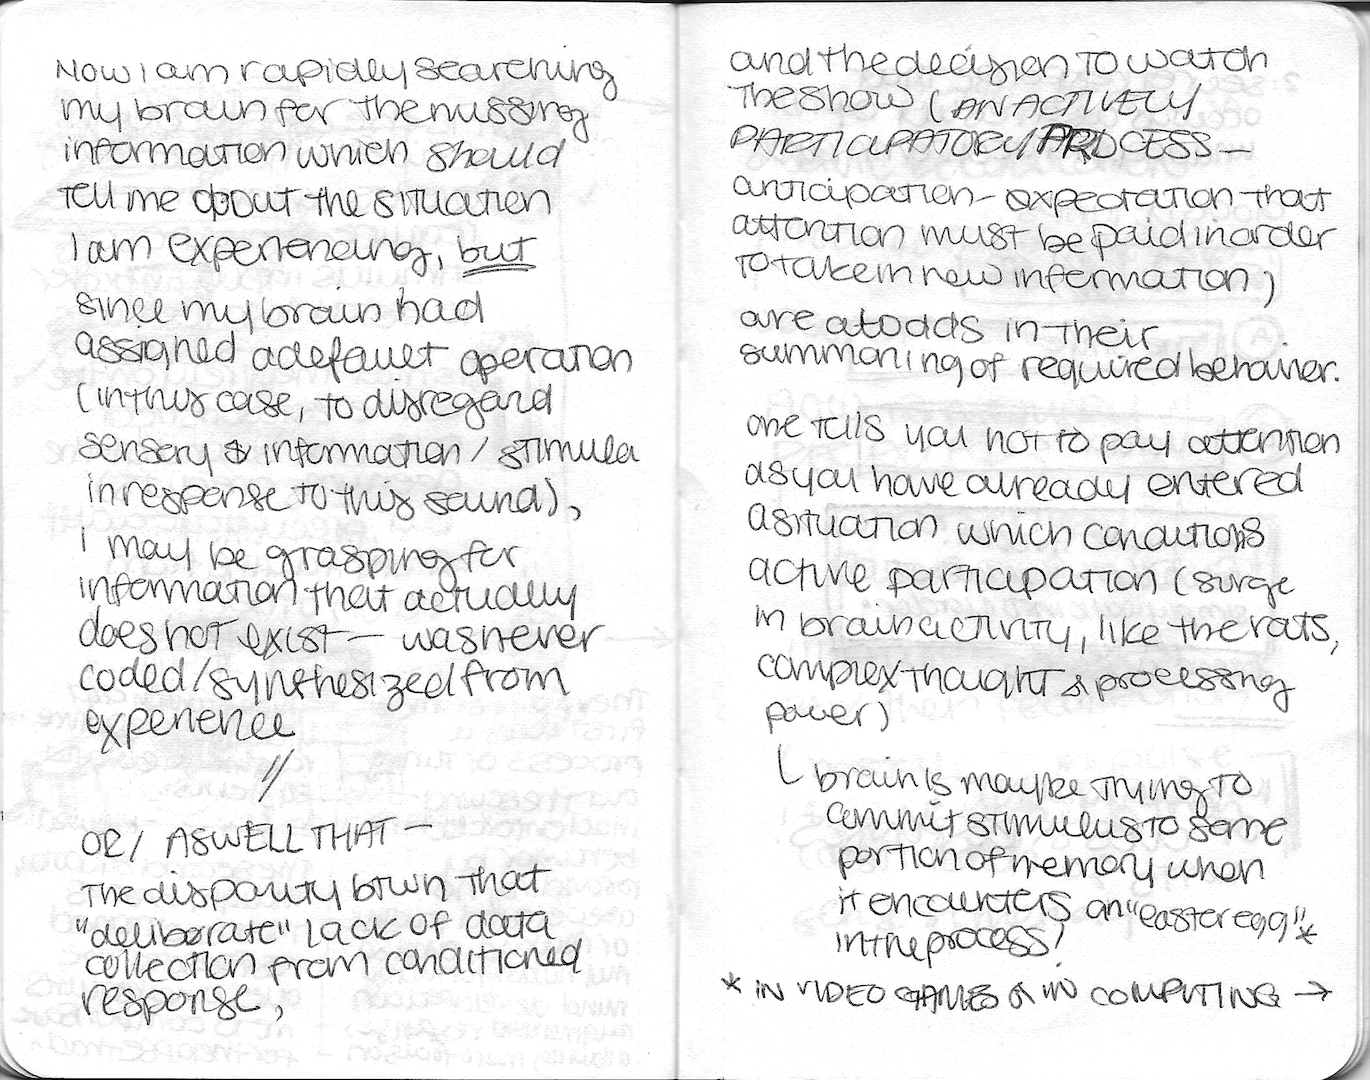 Now I am rapidly searching
my brain for the missing
information which should
tell me about the situation
I am experiencing, but
since my brain had
assigned a default operation
(in this case, to disregard
sensory & information / stimula
in response to this sound),
I may be grasping for
information that actually
does not exist — was never
coded/synthesized from
experience
//
OR/ AS WELL THAT —
The disparity btwn that
"deliberate" lack of data
collection from conditioned
response,
and the decision to watch
the show (AN ACTIVELY
PARTICIPATORY PROCESS —
anticipation - expectation that
attention must be paid in order
to take in new information)
are at odds in their
summoning of required behavior.
one tells you not to pay attention
as you have already entered
a situation which conditions
active participation (surge
in brain activity, like the rats,
complex thought & processing
power)
brain is maybe trying to
commit stimulus to some
portion of memory when
it encounters an "easter egg"*
in the process!
* IN VIDEO GAMES & IN COMPUTING →